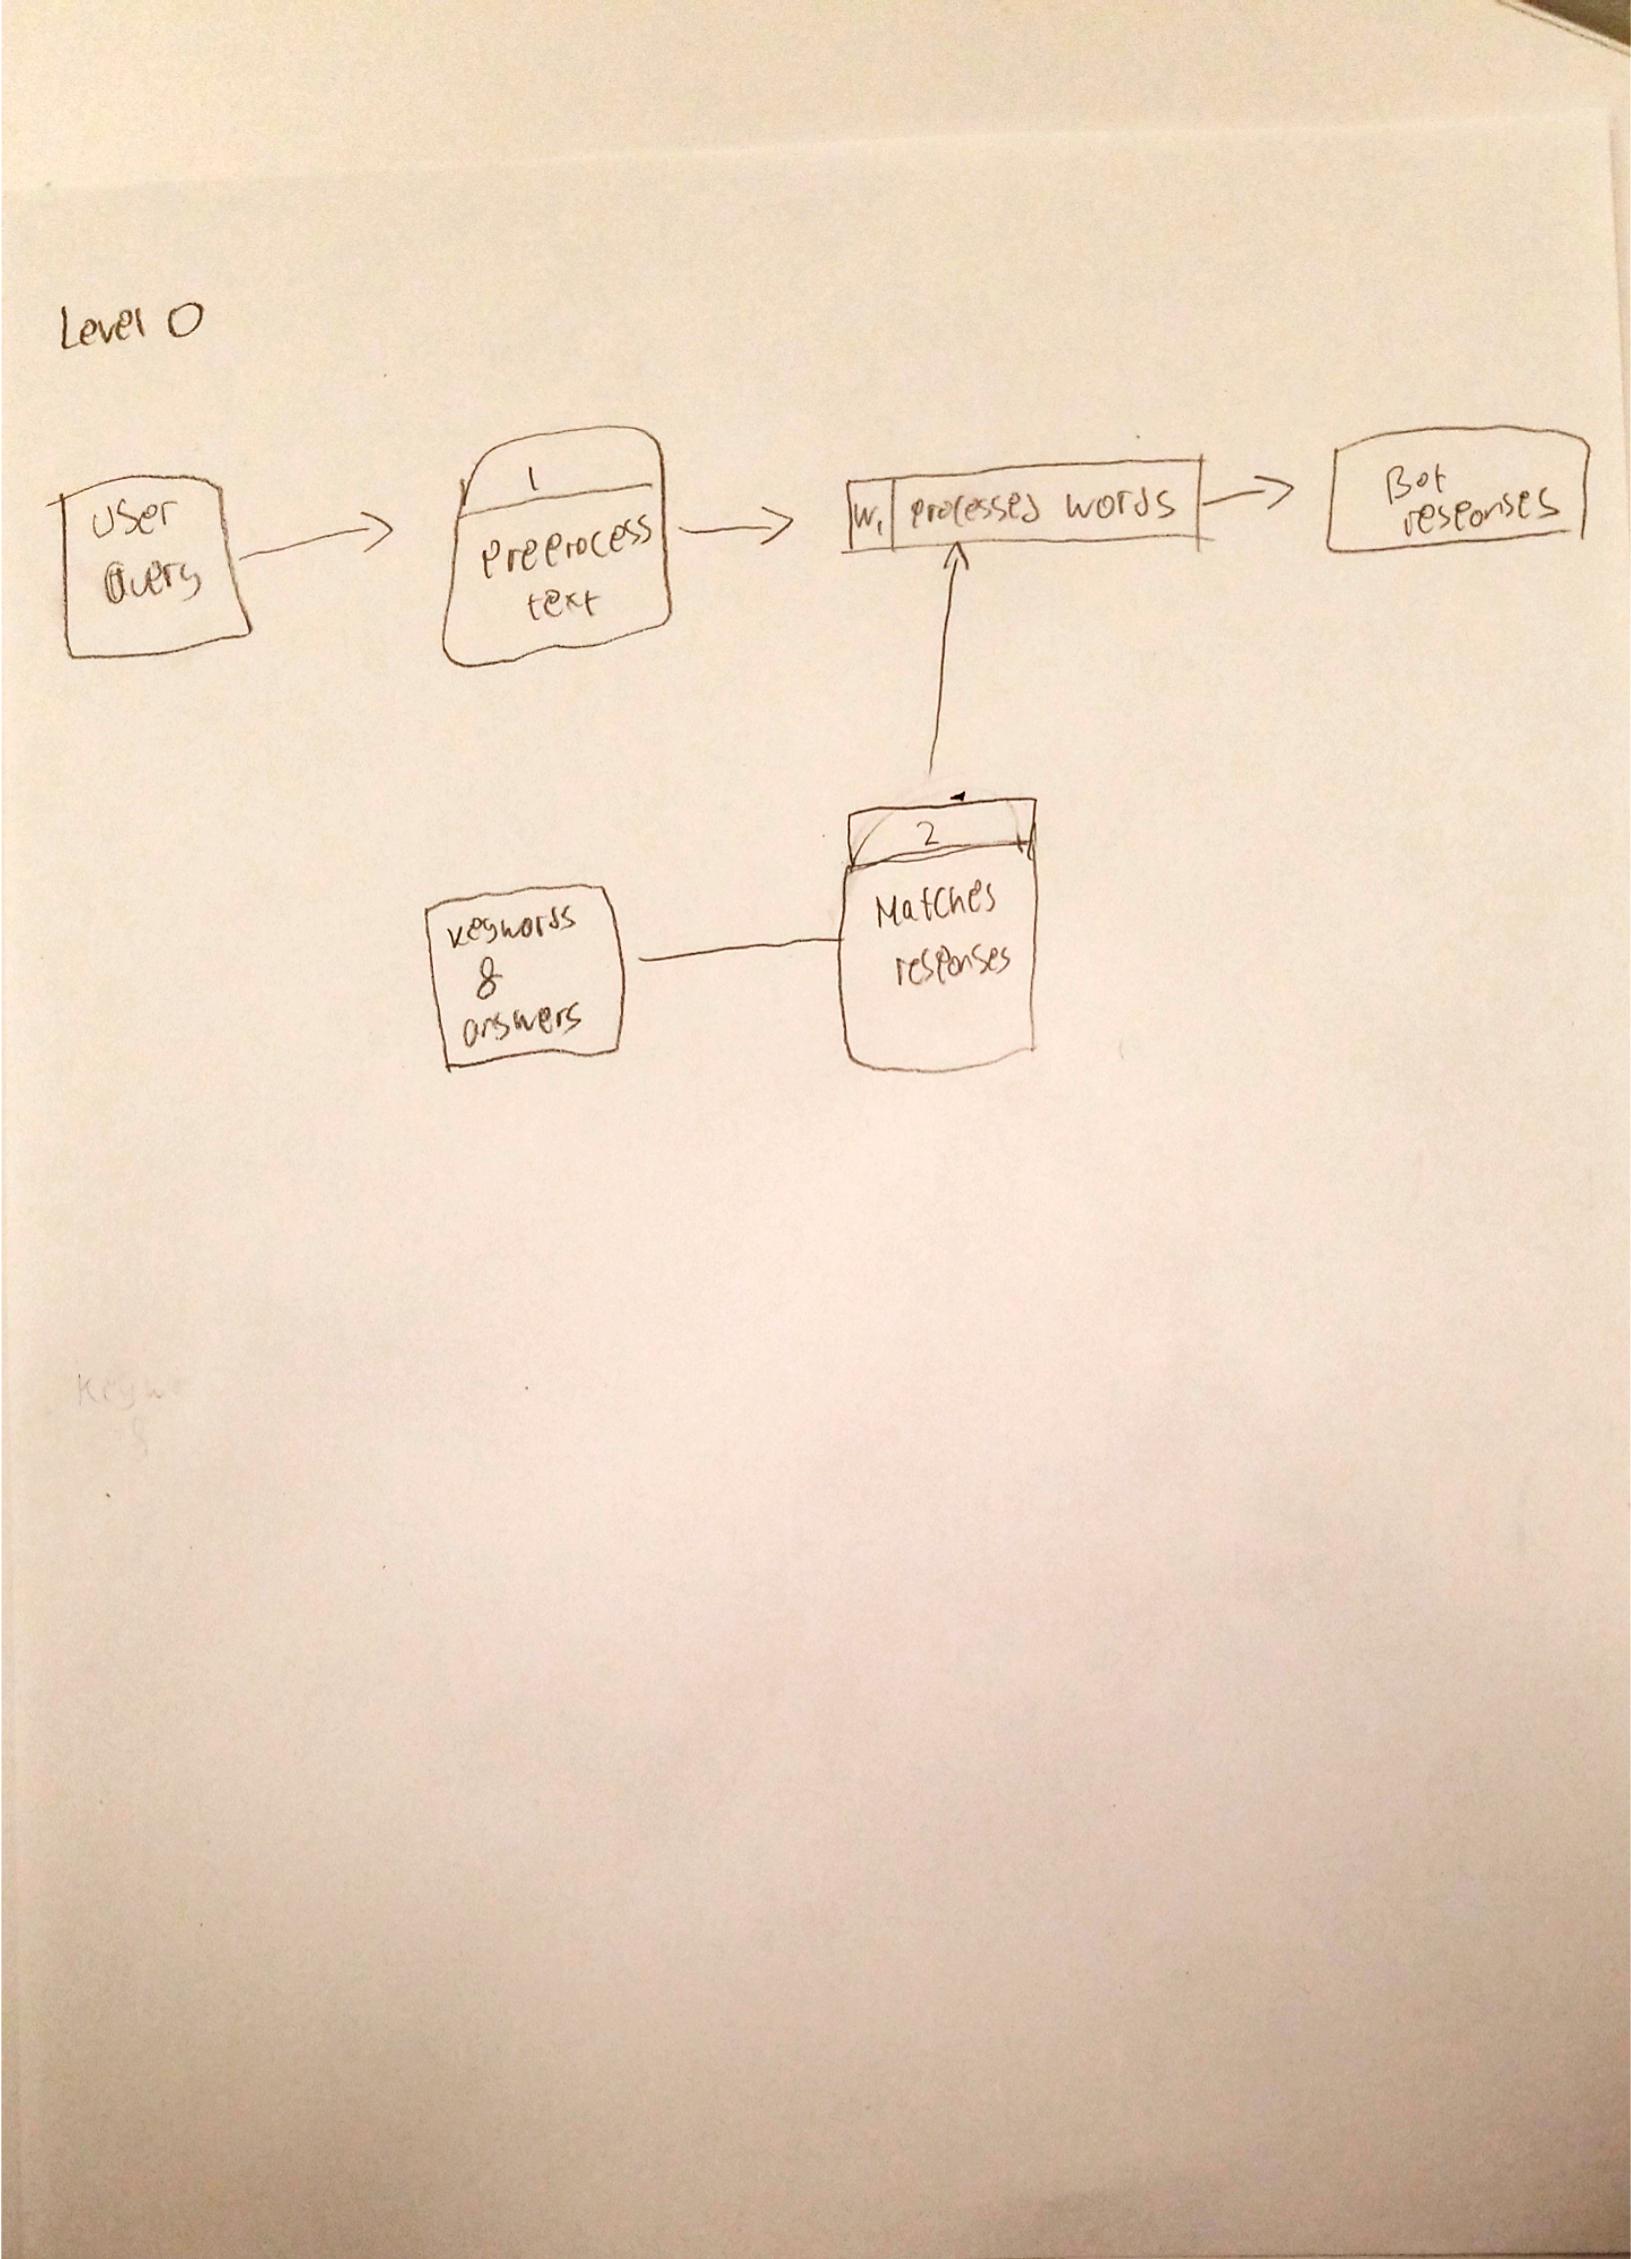 Level 0
User
Query
1
Preprocess
text
W1
processed words
Bot
responses
2
Matches
responses
keywords
&
answers